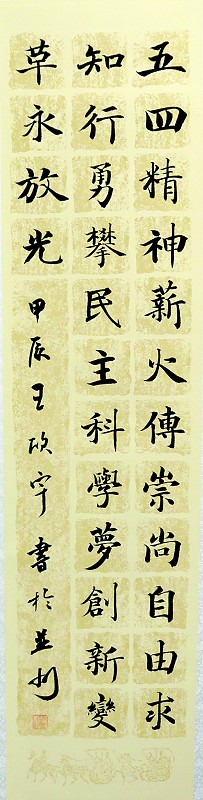 五四精神薪火傳崇尚自由求
知行勇攀民主科學夢創新變
革永放光
甲辰王欣宇書於並州